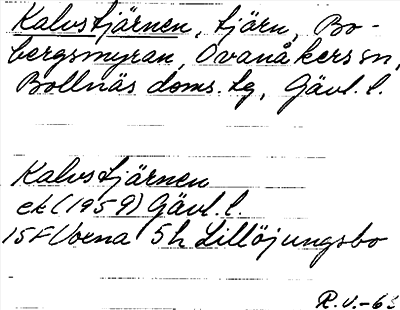 Kalvstjärnen, tjärn, Bo-
bergsmyran, Ovanåkers sn,
Bollnäs doms. tg, Gävl. l.
Kalvstjärnen
ek (1959) Gävl. l.
15F Voxna 5h Lillöjungsbo
R.V.-63